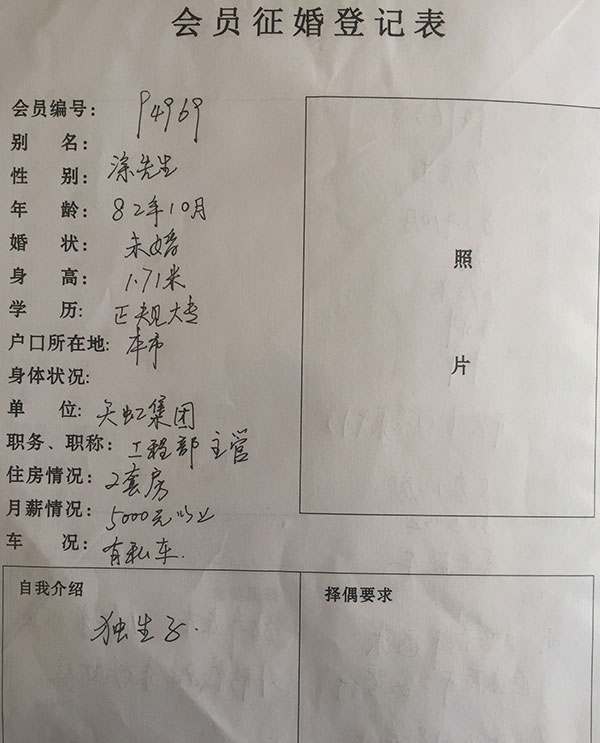 会员征婚登记表
会员编号： P4969
别 名：
性 别： 涂先生
年 龄： 82年10月
婚 状： 未婚
身 高： 1.71米
学 历： 正规大专
户口所在地： 本市
身体状况：
单 位： 天虹集团
职务、职称： 工程部 主管
住房情况： 2套房
月薪情况： 5000元以上
车 况： 有私车.
照
片
自我介绍
独生子.
择偶要求